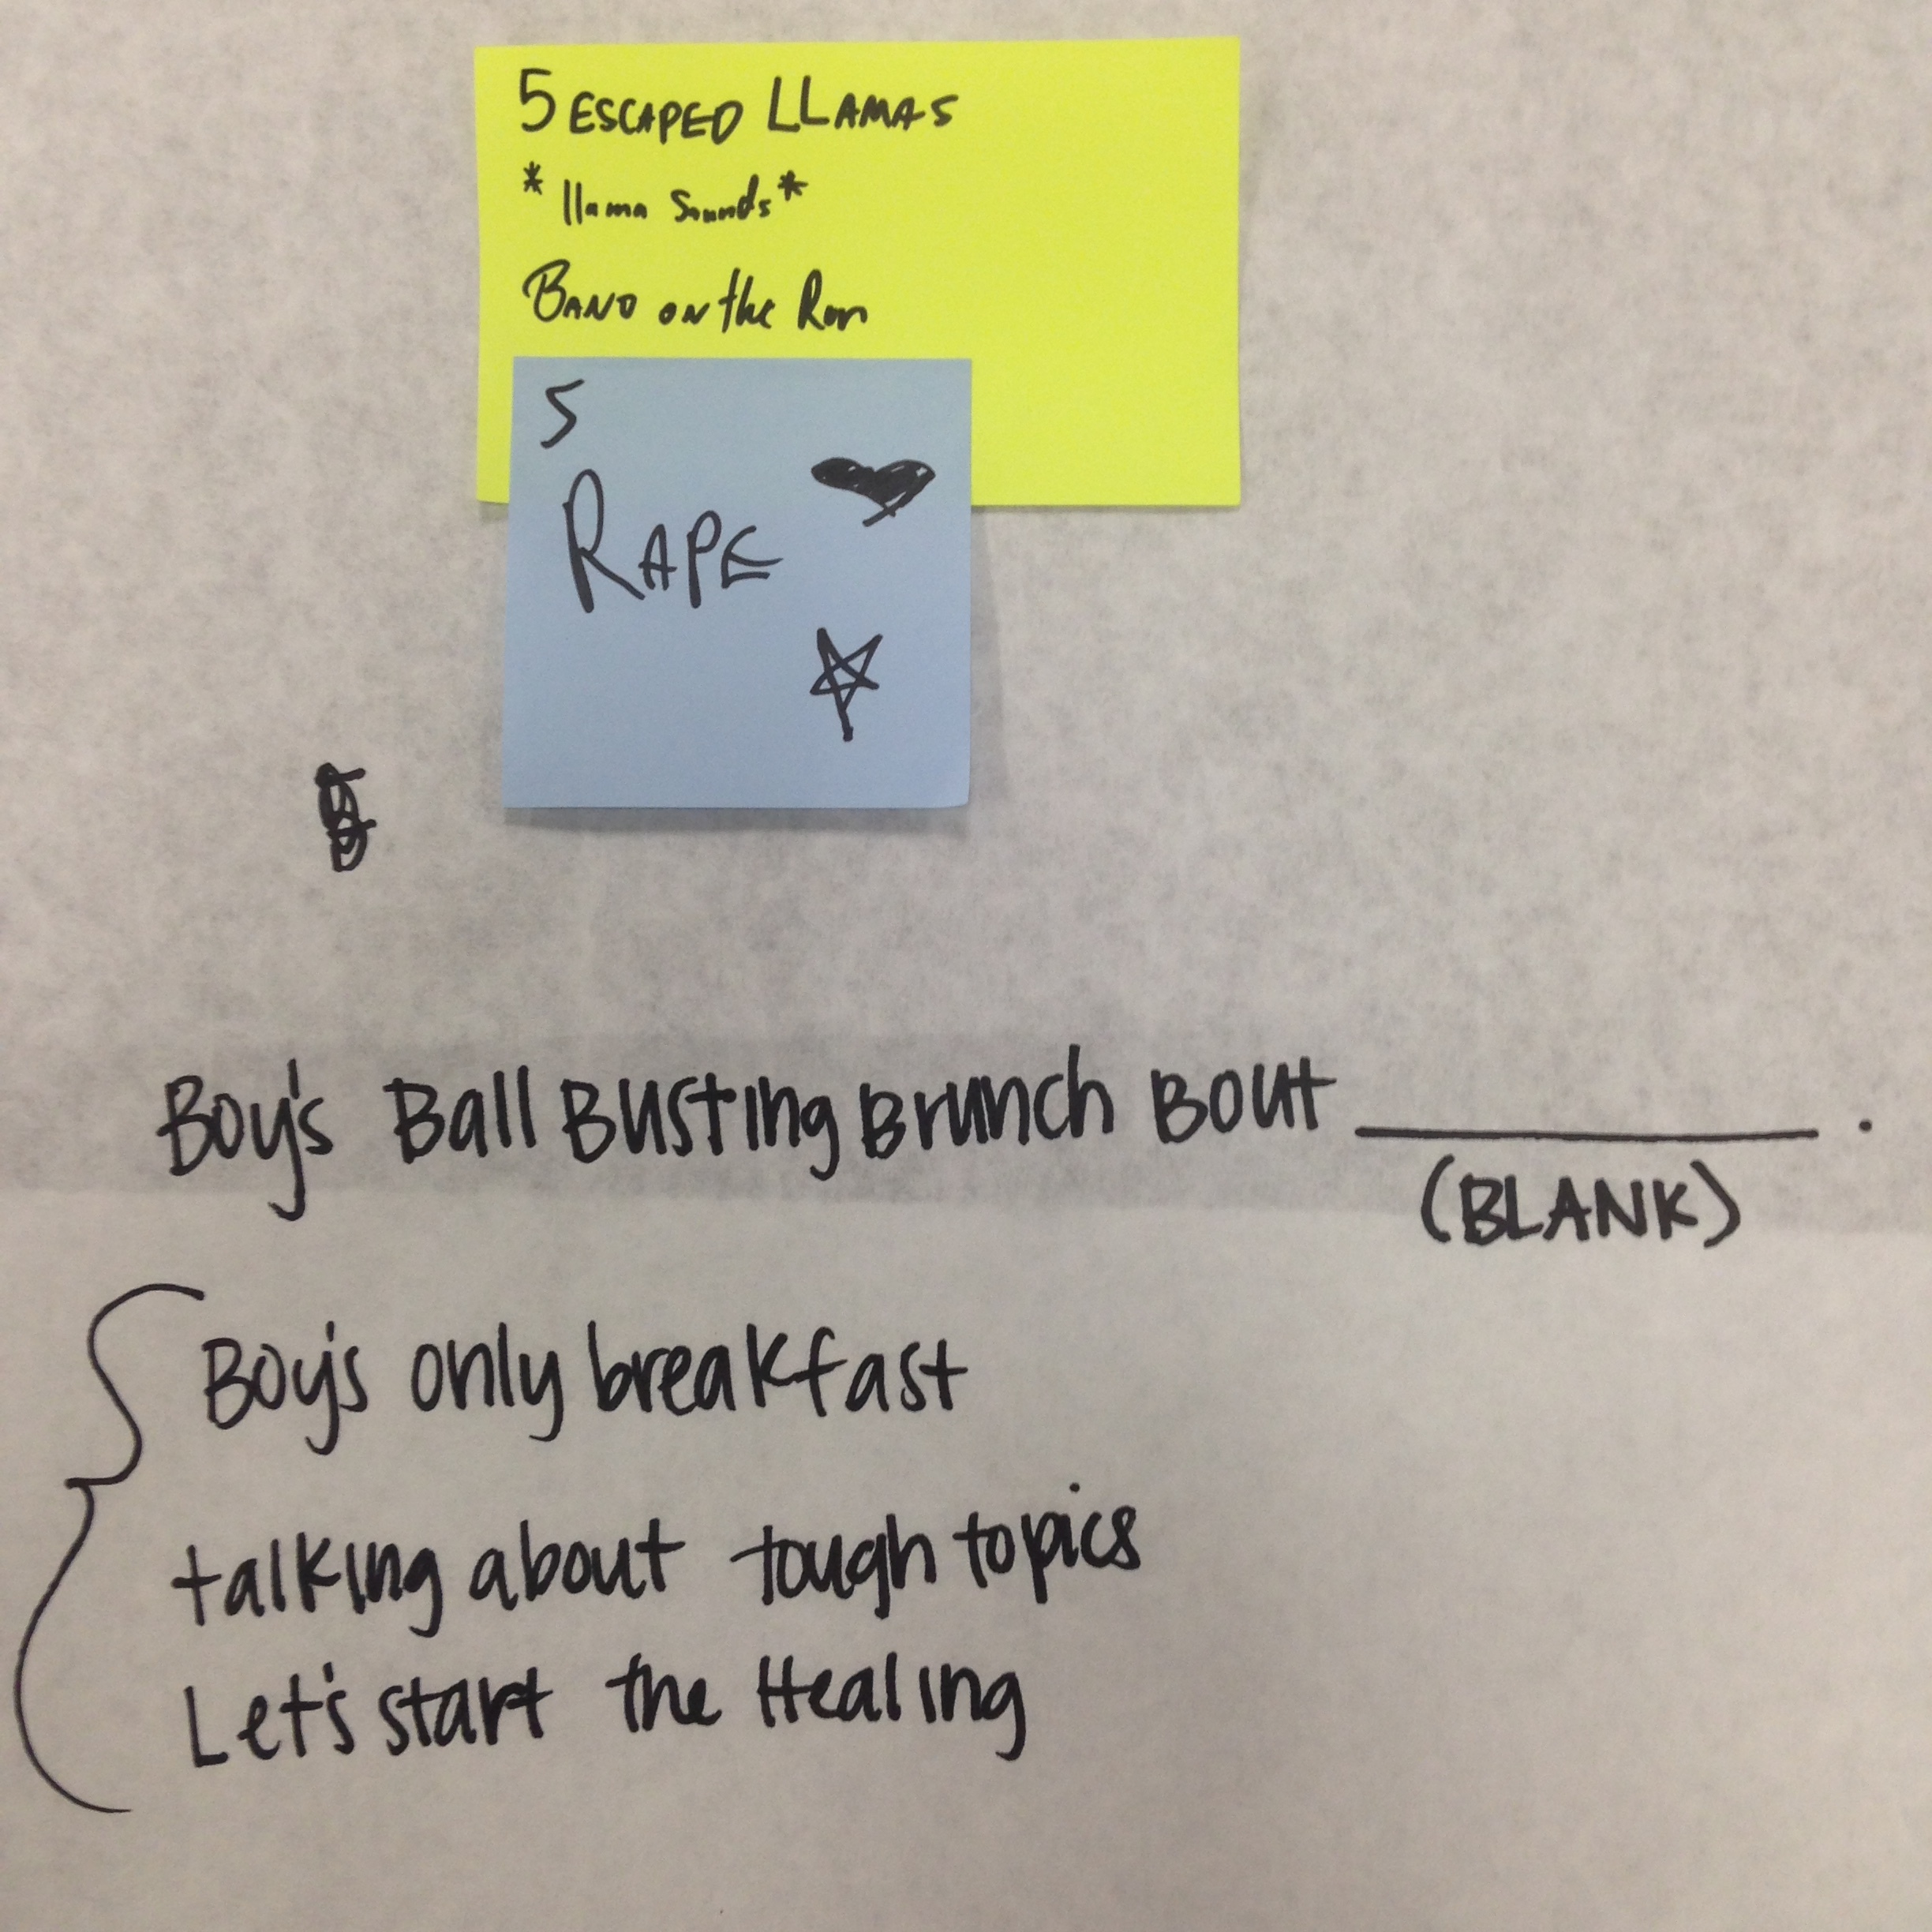 5 ESCAPED LLAMAS
*llama sounds*
BAND on the Run
5
RAPE
Boy's Ball Busting Brunch Bout ________.
(BLANK)
Boy's only breakfast
talking about tough topics
Let's start the Healing